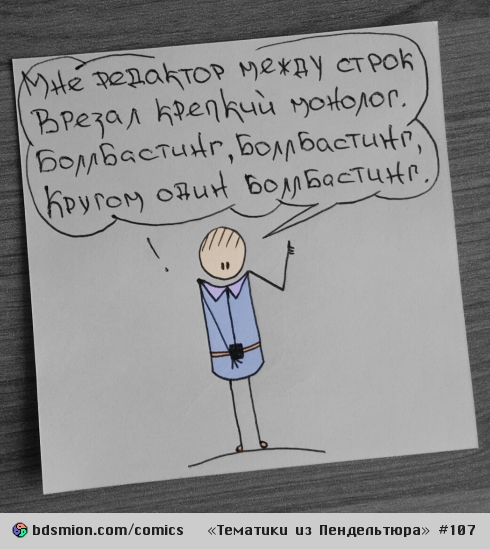 Мне редактор между строк
Врезал крепкий монолог.
Боллбастинг, Боллбастинг,
Кругом один Боллбастинг.
bdsmion.com/comics «Тематики из Пендельтюра» #107